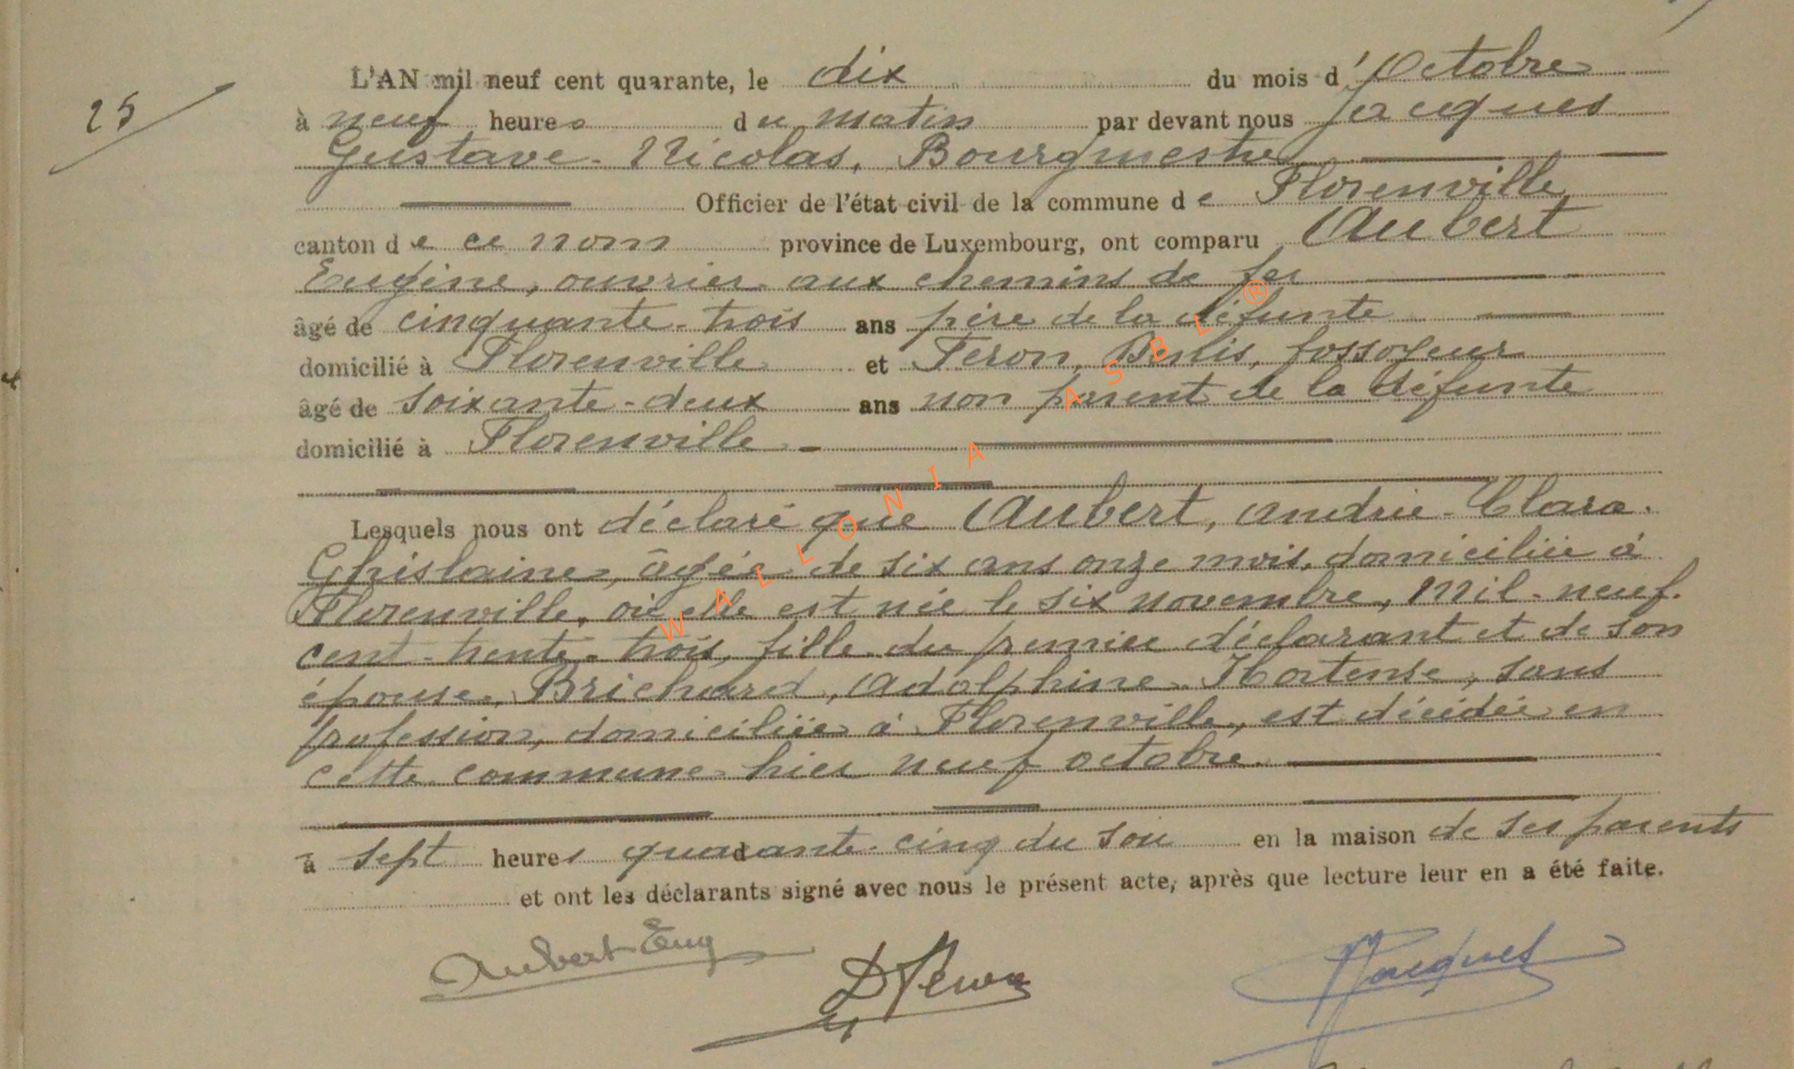 25
L'AN mil neuf cent quarante, le dix du mois d'Octobre
à neuf heures du matin par devant nous Jacques
Gustave-Nicolas, Bourgmestre
Officier de l'état civil de la commune de Florenville
canton de ce nom province de Luxembourg, ont comparu Aubert
Eugène, ouvrier aux chemins de fer
âgé de cinquante-trois ans père de la défunte
domicilié à Florenville et Feron, fossoyeur
âgé de soixante-deux ans non parent de la défunte
domicilié à Florenville
Lesquels nous ont déclaré que Aubert, Andrée-Clara-
Ghislaine, âgée de six ans onze mois, domiciliée à
Florenville, où elle est née le six novembre, mil-neuf-
cent-trente-trois, fille du premier déclarant et de son
épouse, Brichard, Adolphine-Hortense, sans
profession, domiciliée à Florenville, est décédée en
cette commune hier neuf octobre
à sept heures quarante-cinq du soir en la maison de ses parents
et ont les déclarants signé avec nous le présent acte, après que lecture leur en a été faite.
Aubert Eug DFeron Jacques
WALLONIA ASBL ®